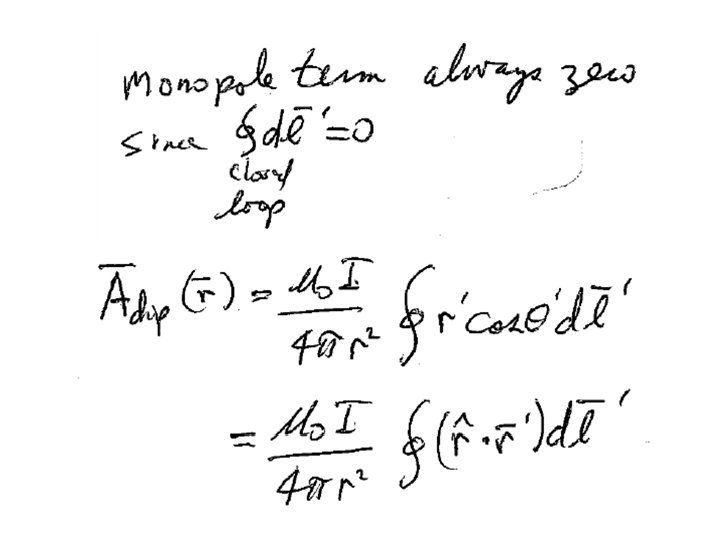 Monopole term always zero
since ∮dl̄'=0
closed
loop
Ā_dip(r̄) = μ₀I/4πr² ∮ r'cosθ'dl̄'
= μ₀I/4πr² ∮(r̂·r̄')dl̄'